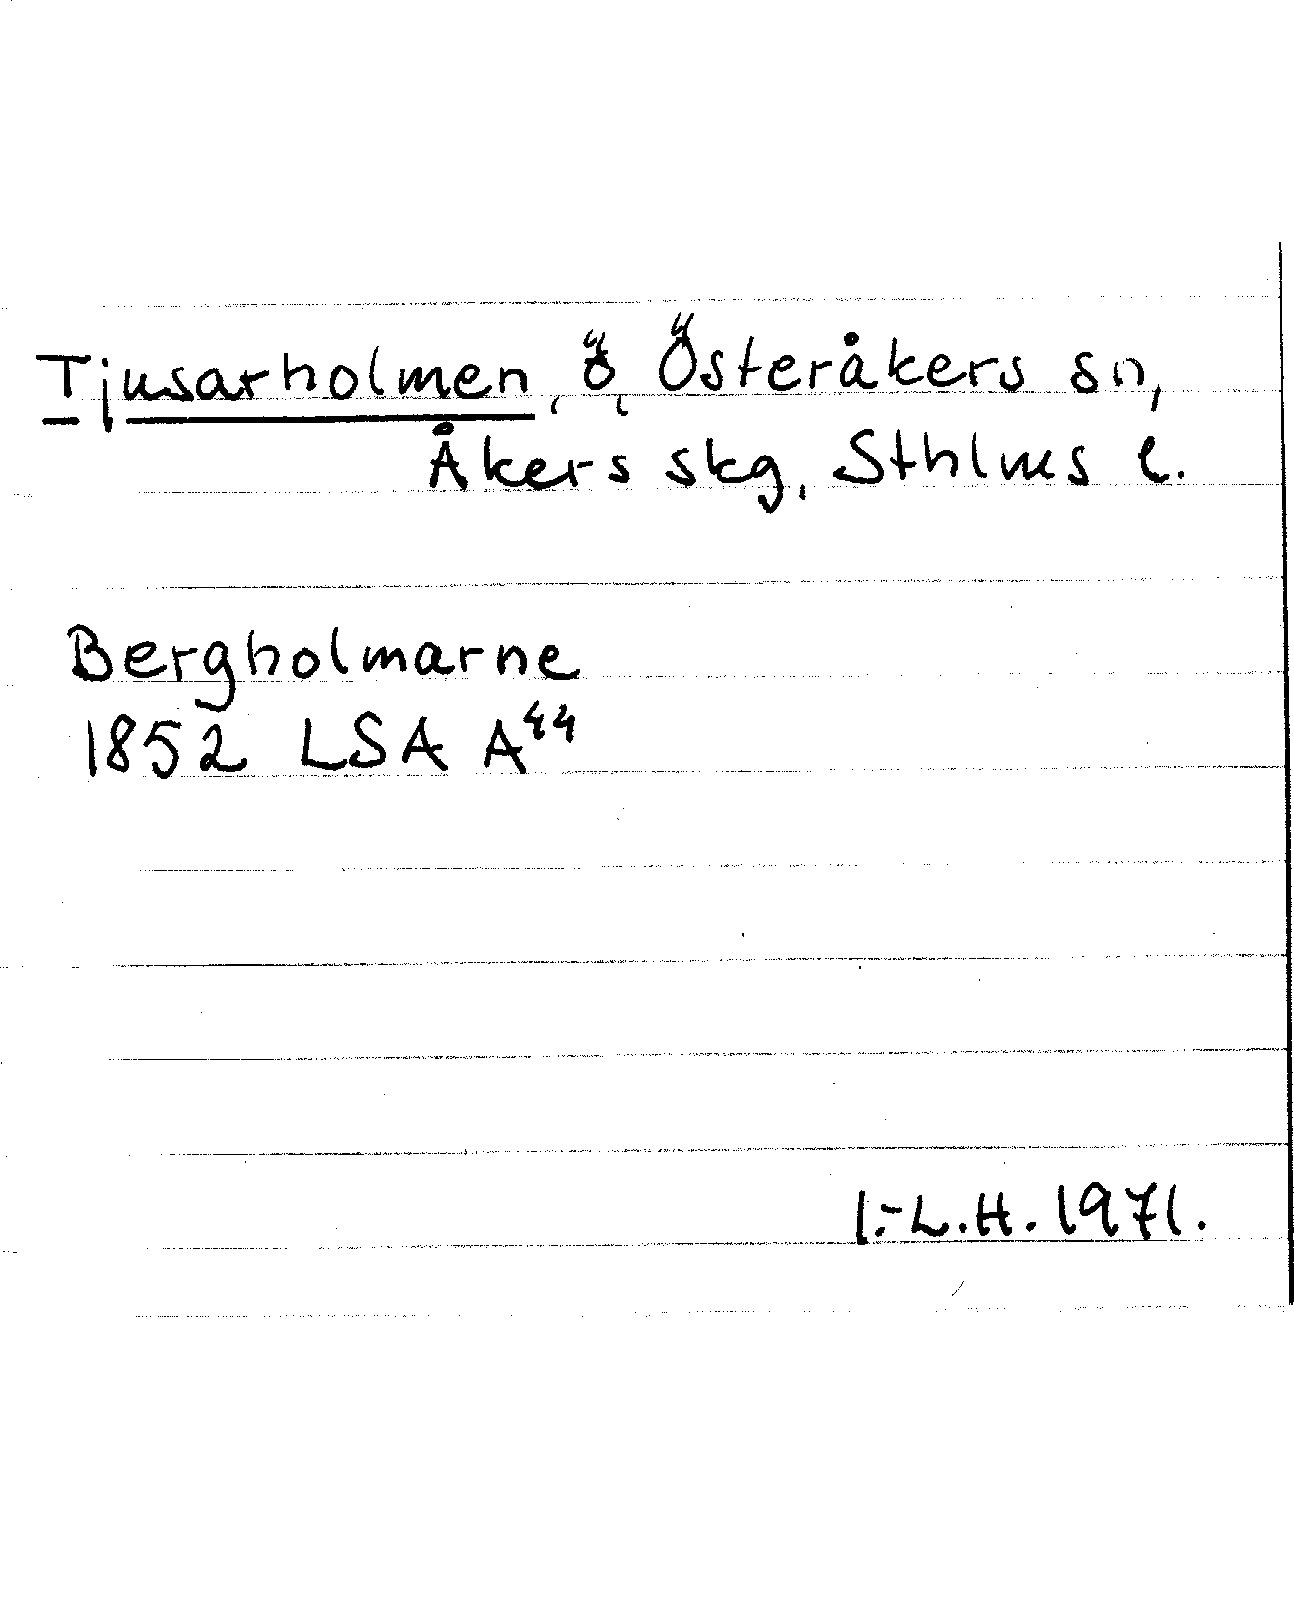 Tjusarholmen, ö, Österåkers sn,
Åkers skg, Sthlms l.
Bergholmarne
1852 LSA A⁴⁴
I.-L.H. 1971.